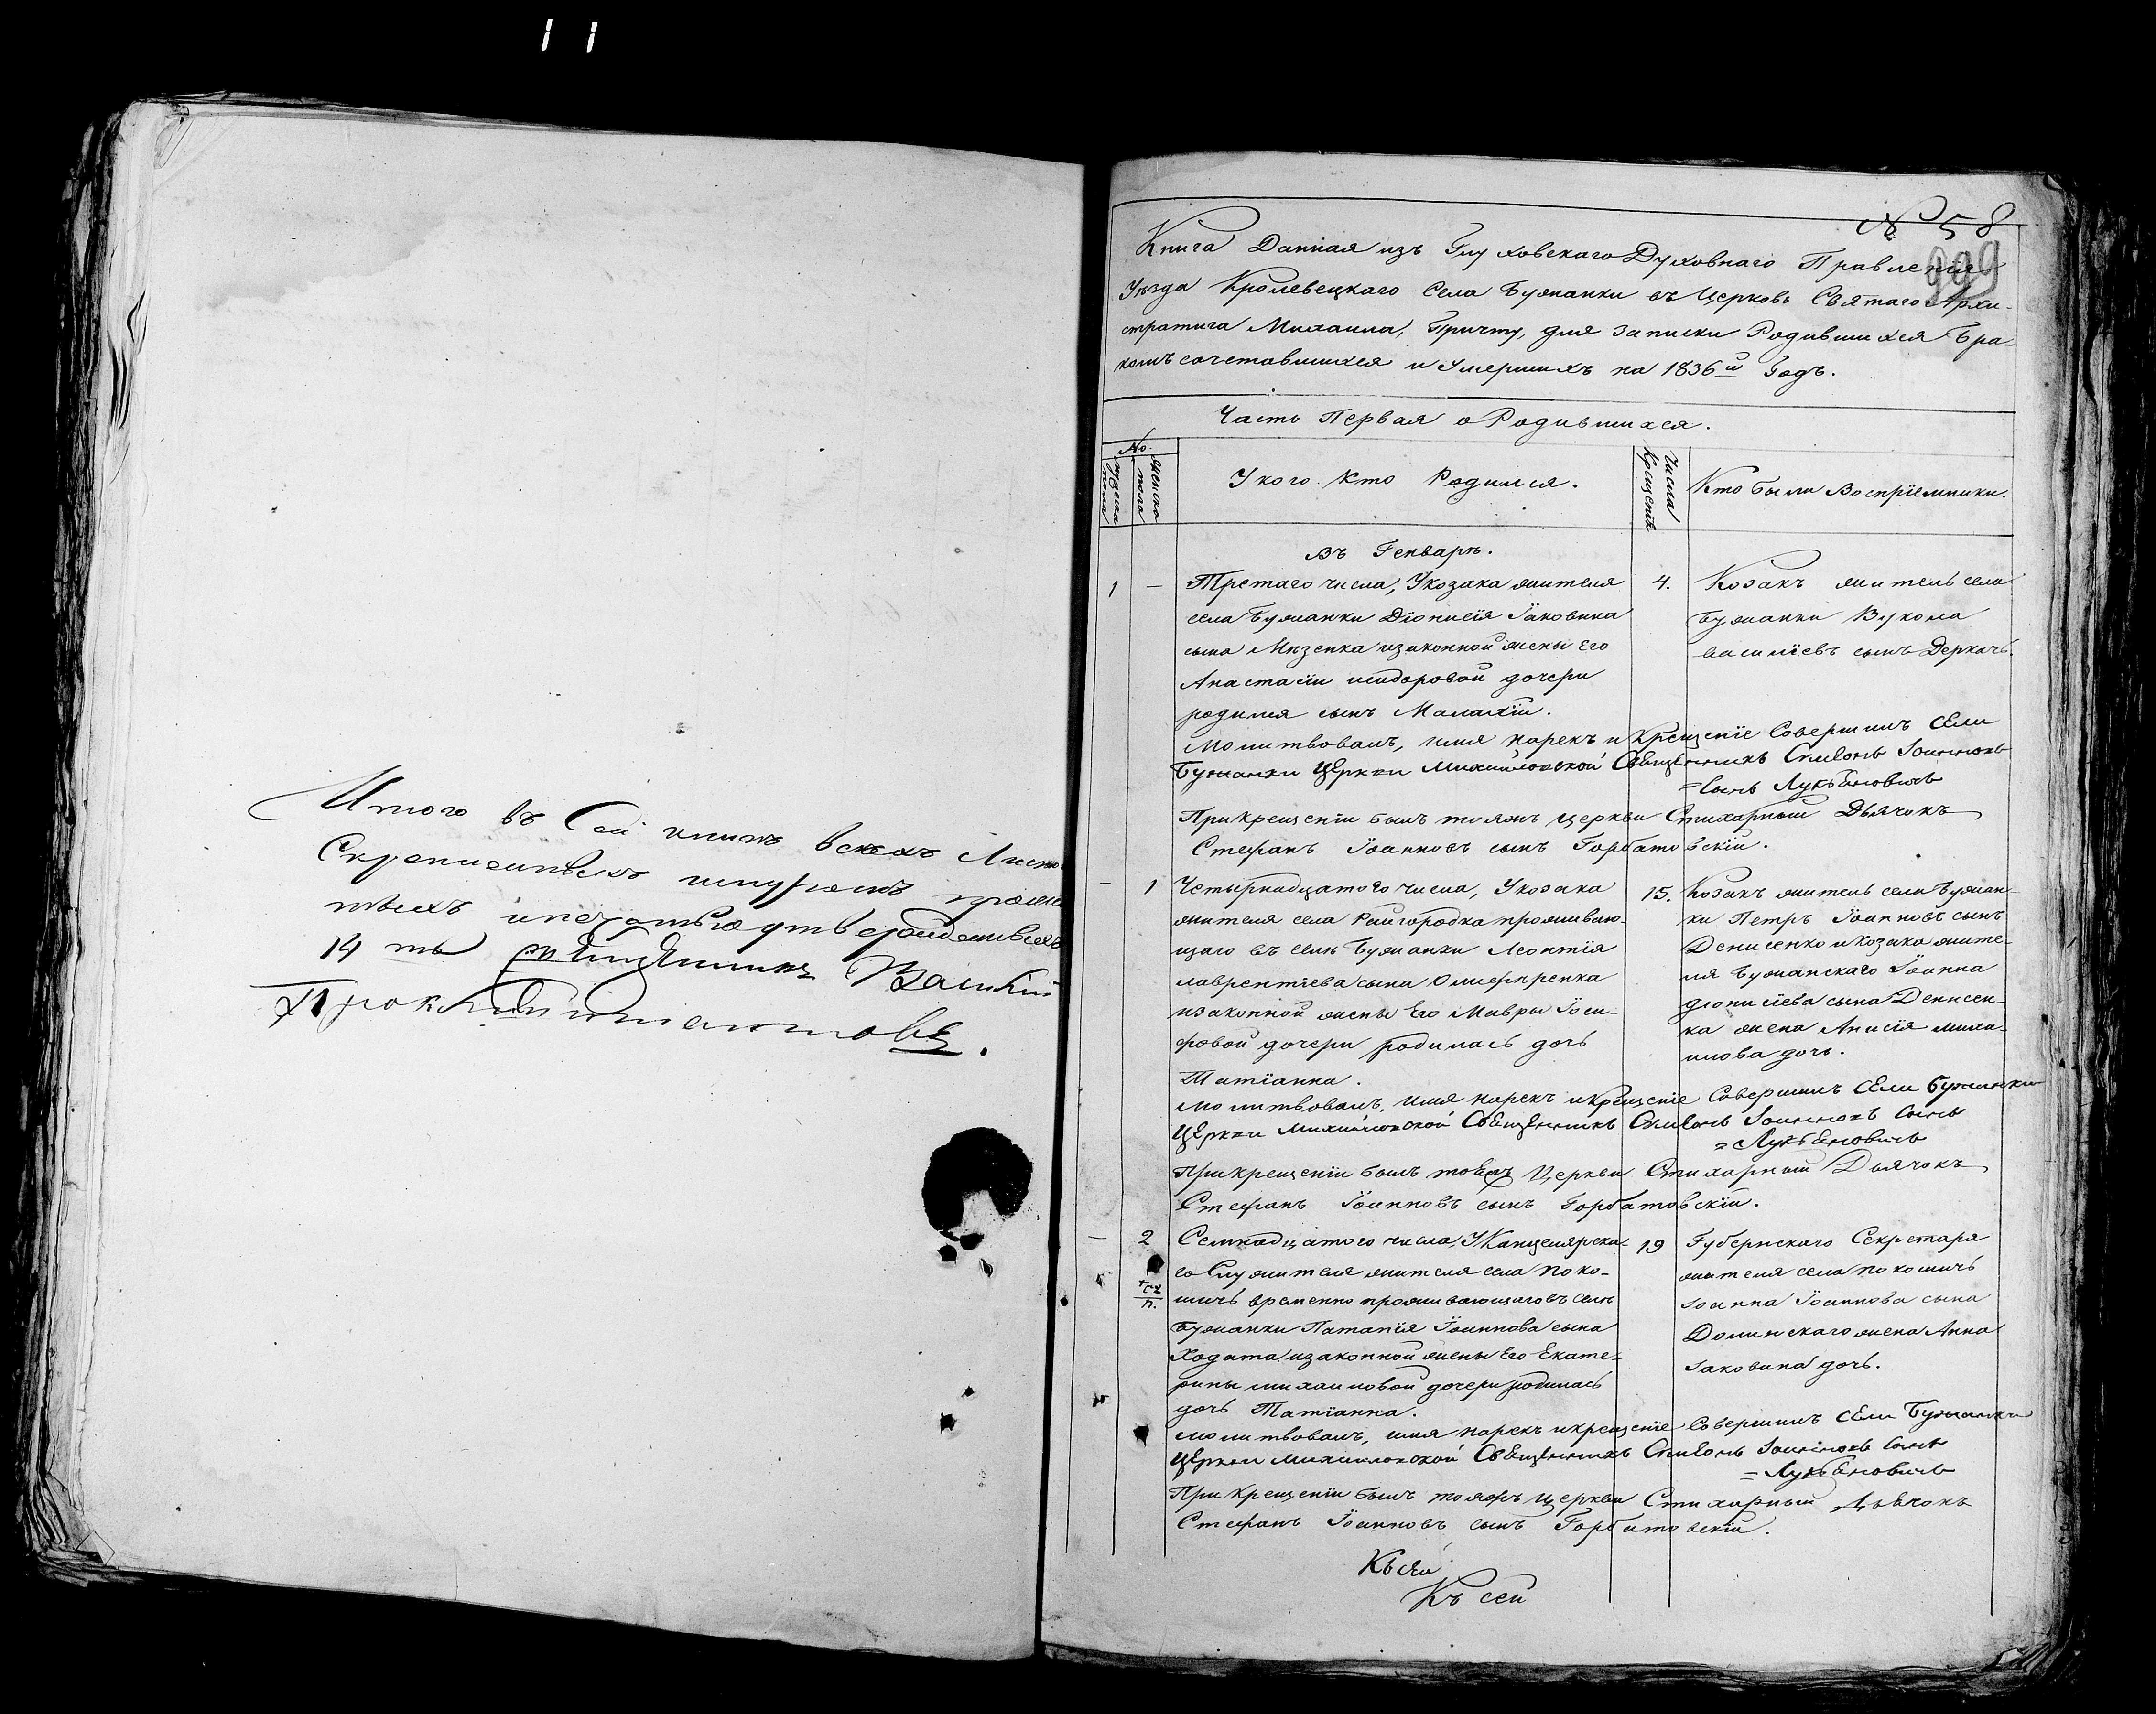 Итого въ Сей книгѣ всехъ Листо
Скрепленныхъ шнуромъ
14 ть
№ 58
909
Книга Данная изъ Глуховскаго Духовнаго Правленія
Уѣзда Кролевецкаго Села Бужанки въ Церковь Святаго Архи-
стратига Михаила, Причту, для записки Родившихся Бра-
комъ сочетавшихся и Умершихъ на 1836й Годъ.
Часть Первая о Родившихся.
No.
мужеска пола
женска пола
У кого Кто Родился.
Числа Крещенія
Кто были Воспріемники.
Въ Генварѣ.
1 — Третаго числа, У козака жителя
села Бужанки Діонисія Іаковина
сына Мѣзенка изаконной жены Его
Анастасіи исидоровой дочери
родился сынъ Малахій.
4. Козакъ житель села
Бужанки Вукола
василіевъ сынъ Деркачь.
молитвовалъ, имя нарекъ и крещеніе Совершилъ СЕла
Бужанки ЦЕркви Михайловской СвЕщЕнникъ СимЕонъ Іоанновъ
=Сынъ ЛукьЕновичь
При крещеніи былъ тояжъ церкви Стихарный Дьячокъ
Стефанъ Іоанновъ сынъ Горбатовскій.
— 1 Четырнадцатого числа, У козака
жителя села Райгородка проживаю-
щаго въ селѣ Бужанки Леонтія
лаврентіева сына Олифиренка
изаконной жены Его Мавры Іоси-
фовой дочери родилась дочь
Татіанна.
15. Козакъ житель села Бужан-
ки Петръ Іоанновъ сынъ
Денисенко и козака жите-
ля Бужанскаго Іоанна
діонисіева сына Денисен-
ка жена Анисія миха-
илова дочь.
молитвовалъ, имя нарекъ и крещеніе Совершилъ СЕла Бужанки
ЦЕркви Михайловской СвЕщЕнникъ СимЕонъ Іоанновъ Сынъ
=ЛукьЕновичь
При крещеніи былъ тоЕжъ Церкви Стихарный Дьячокъ
Стефанъ Іоанновъ сынъ Горбатовскій.
— 2 Семнадцатого числа, У Канцелярска-
го Служителя жителя села Поко-
шичь временно проживающаго въ селѣ
Бужанки Патапія Іоаннова сына
Ходота изаконной жены Его Екате-
рины михаиловой дочери родилась
дочь Татіанна.
19 Губернскаго Секретаря
жителя села покошичь
Іоанна Іоаннова сына
Долинскаго жена Анна
Іаковина дочь.
молитвовалъ, имя нарекъ и крещеніе Совершилъ СЕла Бужанки
ЦЕркви Михайловской СвЕщЕнникъ СимЕонъ Іоанновъ Сынъ
=ЛукьЕновичь
При Крещеніи былъ тояжъ церкви Стихарный Дьячокъ
Стефанъ Іоанновъ сынъ Горбатовскій.
Къ сЕй
Къ сей